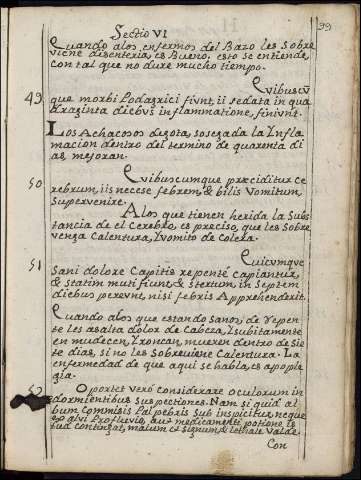 Sectio VI 99
Quando alos enfermos del Bazo les Sobre
viene disenteria, es Bueno, esto se entiende,
con tal que no dure mucho tiempo.
Quibuscū
49 que morbi Podagrici fiunt, ii sedata in qua
draginta diebus inflammatione, finiunt.
Los Achacosos de gota, sosegada la Infla
macion dentro del termino de quarenta di
as, mejoran.
Quibuscumque præciditur ce
50 rebrum, iis necese febrem, & bilis Vomitum,
Supervenire.
A los que tienen herida la Subs
tancia de el Cerebro, es preciso, que les Sobre
venga Calentura, y vomito de Colera.
Quicumque
51 Sani dolore Capitis repente capiantur,
& statim muti fiunt, & stertunt, in Septem
diebus pereunt, nisi febris Apprehenderit.
Quando alos que estando sanos, de repen
te les asalta dolor de Cabeza, y subitamente
en mudecen, y roncan, mueren dentro de Sie
te dias, si no les Sobreviene Calentura. La
enfermedad de que aqui se habla, es apople
gia.
52 Oportet verò considerare oculorum in
dormientibus suspectiones. Nam si quid al
bum Commisis Palpebris sub inspicitur, neque
ex alvi Profluvio, aut medicamenti potione, is
tud contingat, malum est signum, & lethale Valde.
Con